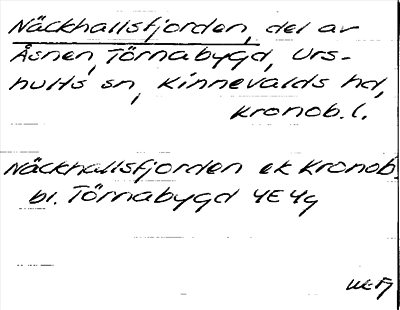 Näckhallsfjorden, del av
Åsnen, Törnabygd, Urs-
hults sn, Kinnevalds hd,
Kronob. l.
Näckhallsfjorden ek Kronob.
bl. Törnabygd 4E4g